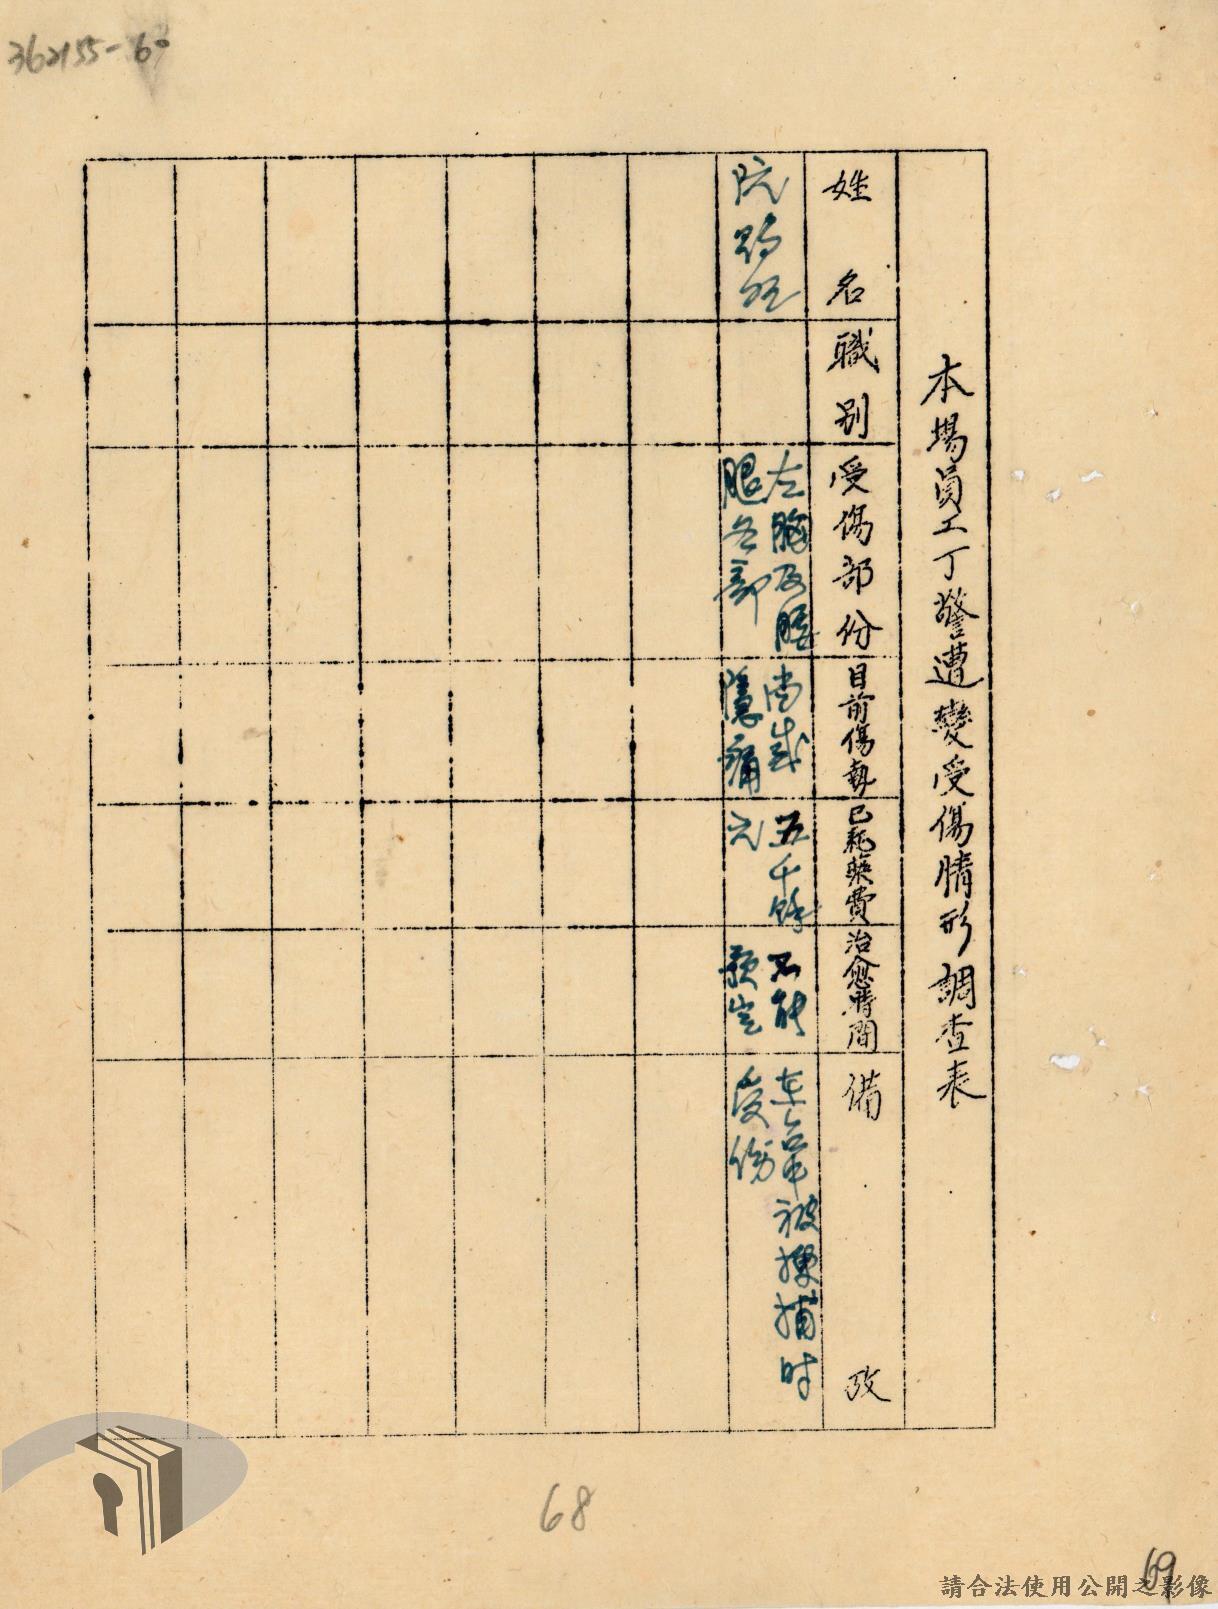 362155-60
本場員工丁警遭變受傷情形調查表
姓名
職別
受傷部份
目前傷執
已耗藥費
治愈時間
備攷
阮
左胸及腰
腿各部
尚感
隱痛
五千餘
元
不能
預定
在台中被擄捕时
受伤
68
69
請合法使用公開之影像